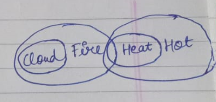 Cloud Fire Heat Hot